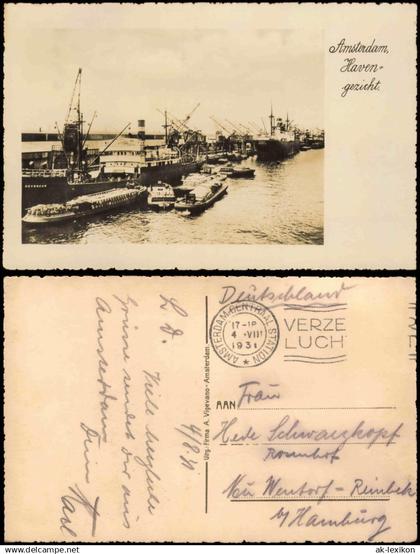 Amsterdam,
Haven-
gezicht.
Deutschland
AMSTERDAM-CENTRAAL STATION
17-18
4 -VIII
1931
VERZE
LUCH
L. D.
4/8.31
Viele herzliche
Grüsse sendet Dir aus
Amsterdam
Dein
Uitg. Firma A. Vigevano - Amsterdam.
AAN
Frau
Hede Schwarzkopf
Rosenhof
Neu Wentorf-Reinbek
b/ Hamburg
ak-lexikon.cc